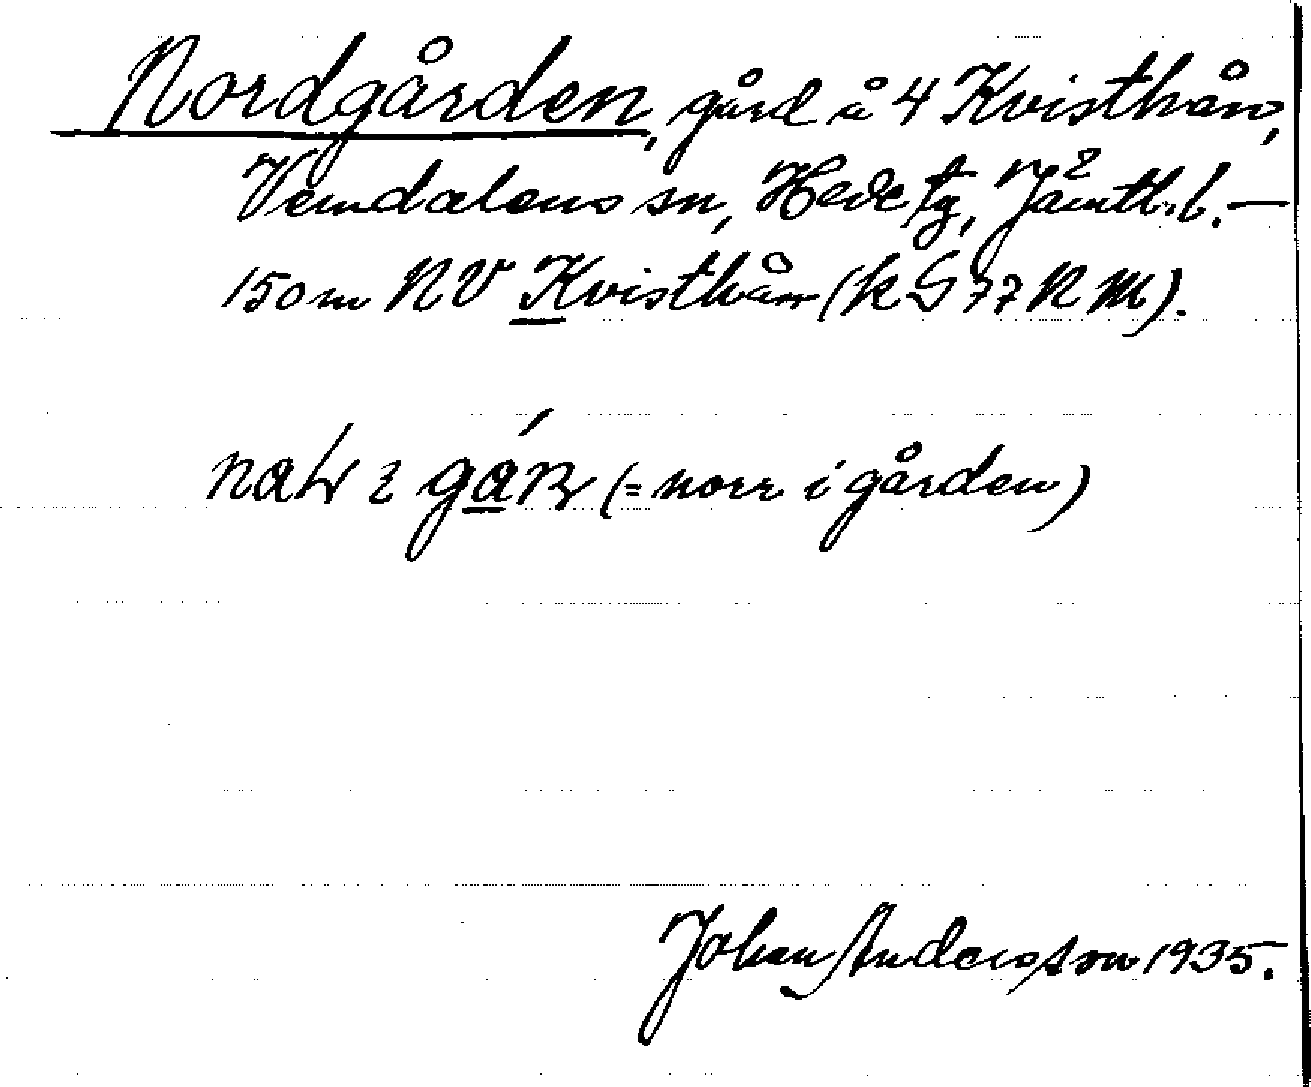 Nordgården, gård å 4 Kvisthån,
Vemdalens sn, Hede tg, Jämtl. l. —
150 m NV Kvisthån (k S 77 N M).
i (= norr i gården)
Johan Andersson 1935.